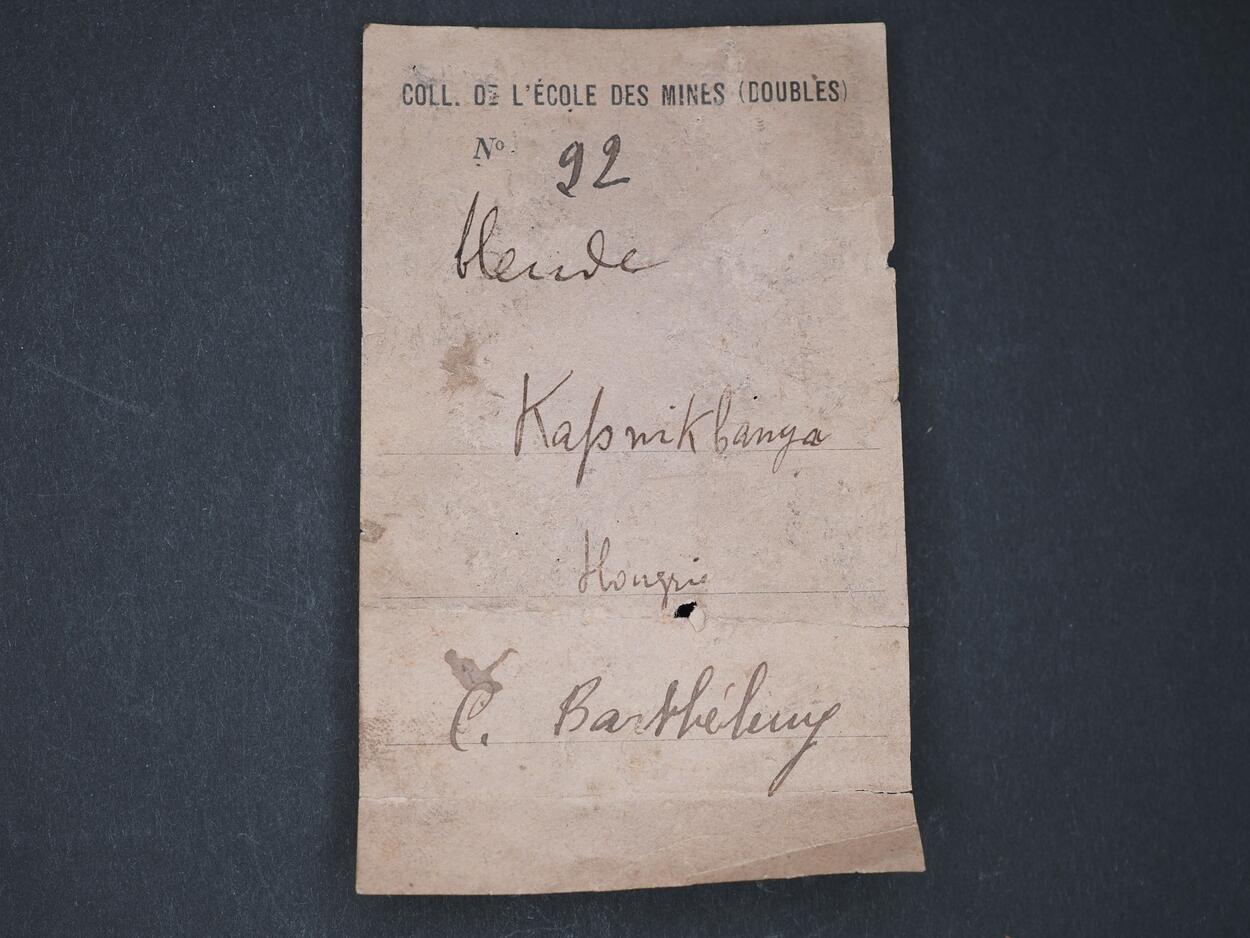 COLL. DE L'ÉCOLE DES MINES (DOUBLES)
Nº. 92
blende
Kapnikbanya
Hongrie
C. Barthélemy